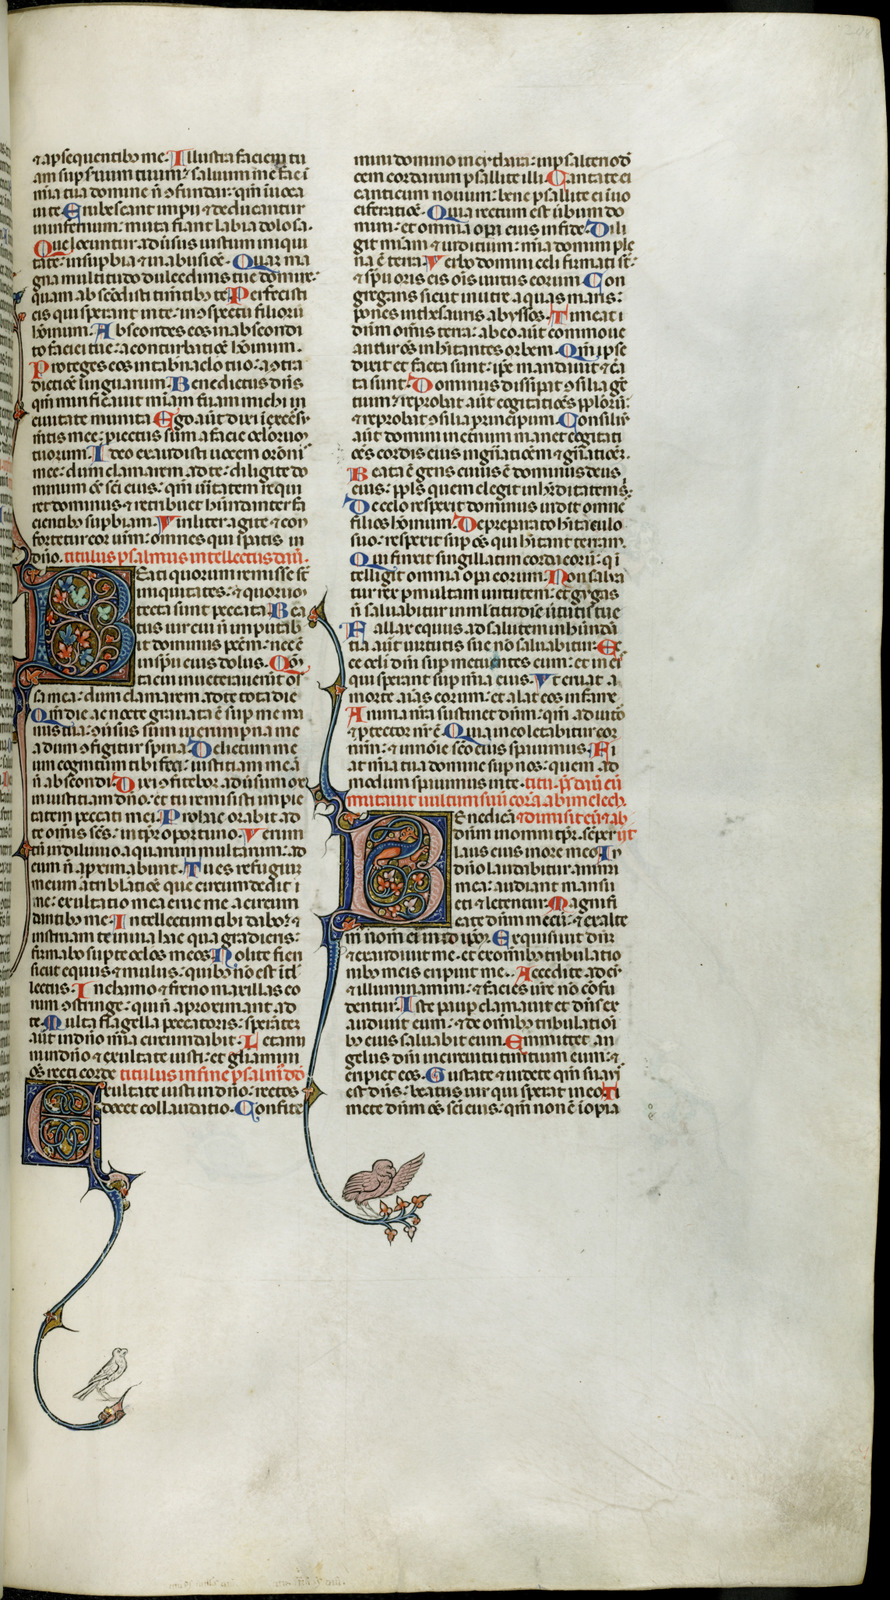 ⁊ a psequentibꝰ me. Illustra faciem tu
am sup suum tuum: saluum me fac ī
mīa tua domine ñ ꝯfundar: qm̄ iuoca
ui te Erubescant impii ⁊ deducantur
infernum: muta fiant labia dolosa.
Que locuntur adūsus iustum iniqui
tatē: in supbia ⁊ in abusiōe. Quā ma
gna multitudo dulcedinis tue domine:
quam abscōdisti timētibꝰ te Perfecisti
eis qui sperant in te: in ꝯspectu filiorū
hōinum. Abscondes eos in abscondi
to faciei tue: a conturbatiōe hōinum.
Proteges eos in tabnaclo tuo: a ꝯtra
dictiōe linguarum. Benedictus dn̄s
qm̄ mirificauit miām suam michi in
ciuitate munita Ego aūt dixi ī excess
mētis mee: proiectus sum a facie oclorum
tuorum. Ideo exaudisti uocem orōni
mee: dum clamarem ad te: diligite do
minum oēs sc̄i eius: qm̄ uītatem requi
ret dominus: ⁊ retribuet hūndanter fa
cientibꝰ supbiam. Viriliter agite ⁊ con
fortetur cor urm̄: omnes qui speratis in
dn̄o. titulus psalmus intellectus dauid.
Beati quorum remisse st̄
iniquitates: ⁊ quorum
tecta sunt peccata Bea
tus uir cui ñ imputab
it dominus pc̄cm̄: nec ē
in spū eius dolus. Qm̄
tacui inueterauerūt os
sa mea: dum clamarem ad te tota die
Qm̄ die ac nocte grauata ē sup me ma
nus tua: ꝯūsus sum in erumpna mea
dum ꝯfigitur spina Delictum me
um cognitum tibi feci: ⁊ iusticiam meā
ñ abscondi Dixi ꝯfitebor adūsum me
iniusticiam dn̄o: et tu remisisti impie
tatem peccati mei Pro hac orabit ad
te omnis sc̄s: in tpr̄e oportuno. Verum
tn̄ in diluuio aquarum multarum: ad
eum ñ aproximabunt. Tu es refugium
meum a tribulatiōe que circumdedit
me: exultatio mea erue me a circum
dantibꝰ me Intellectum tibi dabo ⁊
instruam te in uia hac qua gradieris:
firmabo sup te oclos meos Nolite fieri
sicut equus ⁊ mulus: quibꝰ nō est ītel
lectus. In chamo ⁊ freno maxillas eo
rum ꝯstringe: qui ñ aproximant ad
te Multa flagella peccatoris: sperātez
aūt in dn̄o mīa circumdabit Letami
ni in dn̄o ⁊ exultate iusti: et gliamini
oēs recti corde titulus in fine psalm̄ dd
Exultate iusti in dn̄o: rectos
decet collaudatio. Confite
mini domino in cythara: in psalterio dē
cem cordarum psallite illi Cantate ei
canticum nouum: bene psallite ei ī uo
ciferatiōe. Quia rectum est ūbum do
mini: et omnia opa eius in fide Dili
git miām ⁊ iuditium: mīa domini ple
na ē terra Verbo domini celi firmati st̄:
⁊ spū oris eis oīs uirtus eorum Con
gregans sicut in utre aquas maris:
ponēs in thesauris abyssos. Timeat
dn̄m omnis terra: ab eo aūt commoue
antur oēs inhītantes orbem. Qm̄ ipse
dixit et facta sunt: ipē mandauit ⁊ cr̄a
ta sunt Dominus dissipat ꝯsilia gē
tium: reprobat aūt cogitatiōes pplorū:
⁊ reprobat ꝯsilia principum Consiliū
aūt domini in etnum manet cogitati
ōes cordis eius in gn̄atiōem ⁊ gn̄atiōez.
Beata ē gens cuius ē dominus deus
eius: ppls quem elegit in hʒditatem s:
De celo respexit dominus uidit omnes
filios hōinum De preparato hītaculo
suo: respexit sup oēs qui hītant terram.
Qui finxit singillatim corda eorū: qi
telligit omnia opa eorum Non salua
tur rex p multam uirtutem: et gygas
ñ saluabitur in mltitudine uirtutis sue
Fallax equus ad salutem in hūndā
tia aūt uirtutis sue nō saluabitur Ec
ce oculi dn̄i sup metuentes eum: et in eis
qui sperant sup mīa eius. Vt eruat a
morte aīas eorum: et alat eos in fame
Anima nr̄a sustinet dn̄m: qm̄ adiutor
⁊ ptector nr̄ ē Quia in eo letabitur cor
nrm̄: ⁊ in noīe sc̄o eius sperauimus Fi
at mīa tua domine sup nos: quem ad
modum sperauimus in te. titu. ps̄ dauid cū
mutauit uultum suū corā abimelech
Benedicā ⁊ dimisit eū ⁊ ab
dn̄m in omni tpr̄e: sēper iit
laus eius in ore meo In
dn̄o laudabitur anima
mea: audiant mansu
eti ⁊ letentur Magnifi
cate dn̄m mecū: ⁊ exalte
mꝰ nom̄ ei in id ipm̄. Exquisiui dn̄m
⁊ exaudiuit me: et ex omībꝰ tribulatio
nibꝰ meis eripuit me. Accedite ad eū
⁊ illuminamini: ⁊ facies ūre nō cōfū
dentur Iste paup clamauit et dn̄s ex
audiuit eum: ⁊ de omībꝰ tribulatiōi
bꝰ eius saluabit eum. Emmittet an
gelus dn̄i in circuitu timētium eum: ⁊
eripiet eos. Gustate ⁊ uidete qm̄ suauis
est dn̄s: beatus uir qui sperat in eo Ti
mete dn̄m oēs sc̄i eius: qm̄ non ē īopia